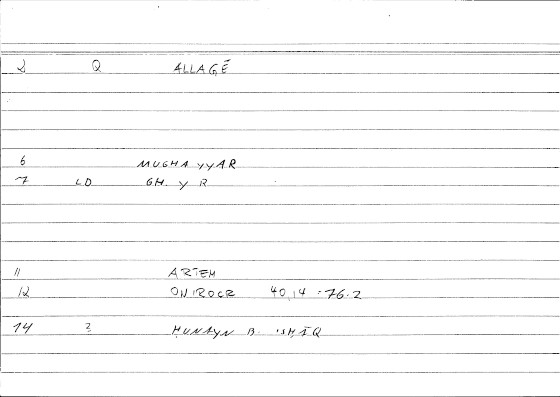 2 Q ALLAGĒ
6 MUGHAYYAR
7 LD GH. Y R
11 ARTEM
12 ONIROCR 40,14 : 76.2
14 2 ḤUNAYN B. ISḤĀQ